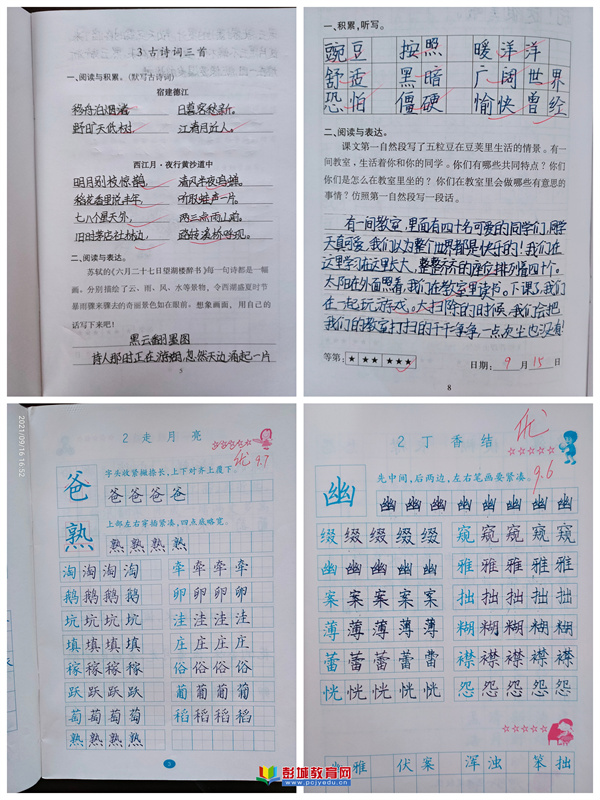 3 古诗词三首
一、阅读与积累。(默写古诗词)
宿建德江
移舟泊烟渚, 日暮客愁新。
野旷天低树, 江清月近人。
西江月·夜行黄沙道中
明月别枝惊鹊, 清风半夜鸣蝉。
稻花香里说丰年, 听取蛙声一片。
七八个星天外, 两三点雨山前。
旧时茅店社林边, 路转溪桥忽现。
二、阅读与表达。
苏轼的《六月二十七日望湖楼醉书》每一句诗都是一幅
画,分别描绘了云、雨、风、水等景物,令西湖盛夏时节
暴雨骤来骤去的奇丽景色如在眼前。想象画面,用自己的
话写下来吧!
黑云翻墨图
诗人那时正在游湖,忽然天边涌起一片
5
一、积累,听写。
豌豆 按照 暖洋洋
舒适 黑暗 广阔世界
恐怕 僵硬 愉快曾经
二、阅读与表达。
课文第一自然段写了五粒豆在豆荚里生活的情景。有一
间教室,生活着你和你的同学。你们有哪些共同特点?你们
们是怎么在教室里坐的?你们在教室里会做哪些有意思的
事情?仿照第一自然段写一段话。
有一间教室,里面有四十名可爱的同学们,同学
天真可爱,我们以为整个世界都是快乐的!我们在
这里学习在这里长大,整整齐齐的座位排列着四十个。
太阳在外面照着,我们在教室里读书。下课,我们
在一起玩游戏。大扫除的时候,我们会把
我们的教室打扫的干干净净,一点灰尘也没有!
等第: ★ ★★ ★★★ 日期: 9 月 15 日
8
2021/09/16 16:52
2 走 月 亮
优 9.7
爸 字头收紧撇捺长,上下对齐上覆下。
爸 爸 爸 爸
熟 上部左右穿插紧凑,四点底略宽。
熟 熟 熟 熟
淘 淘 淘 淘 牵 牵 牵 牵
鹅 鹅 鹅 鹅 卵 卵 卵 卵
坑 坑 坑 坑 洼 洼 洼 洼
填 填 填 填 庄 庄 庄 庄
稼 稼 稼 稼 俗 俗 俗 俗
跃 跃 跃 跃 葡 葡 葡 葡
萄 萄 萄 萄 稻 稻 稻 稻
熟 熟 熟 熟
3
2 丁 香 结
优
9.6
幽 先中间,后两边,左右笔画要紧凑。
幽 幽 幽 幽 幽 幽 幽 幽
缀 缀 缀 缀 缀 窥 窥 窥 窥 窥
幽 幽 幽 幽 幽 雅 雅 雅 雅 雅
案 案 案 案 案 拙 拙 拙 拙 拙
薄 薄 薄 薄 薄 糊 糊 糊 糊 糊
蕾 蕾 蕾 蕾 蕾 襟 襟 襟 襟 襟
恍 恍 恍 恍 恍 怨 怨 怨 怨 怨
幽雅 伏案 浑浊 笨拙
彭城教育网
www.pcjyedu.cn